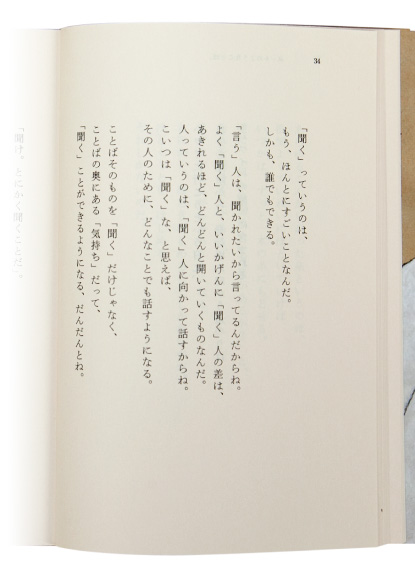 34
「聞く」っていうのは、
もう、ほんとにすごいことなんだ。
しかも、誰でもできる。
「言う」人は、聞かれたいから言ってるんだからね。
よく「聞く」人と、いいかげんに「聞く」人の差は、
あきれるほど、どんどんと開いていくものなんだ。
人っていうのは、「聞く」人に向かって話すからね。
こいつは「聞く」な、と思えば、
その人のために、どんなことでも話すようになる。
ことばそのものを「聞く」だけじゃなく、
ことばの奥にある「気持ち」だって、
「聞く」ことができるようになる、だんだんとね。
「聞け、とにかく聞くことだ」